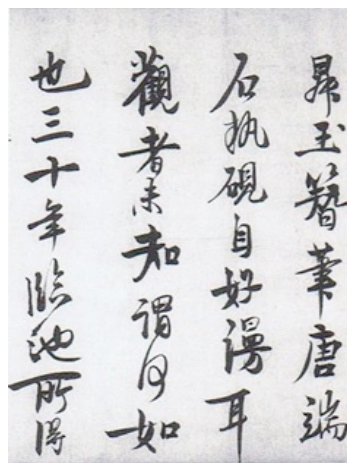 昇玉簪筆唐端
石執硯自好漫耳
觀者未知謂何如
也三十年臨池所得